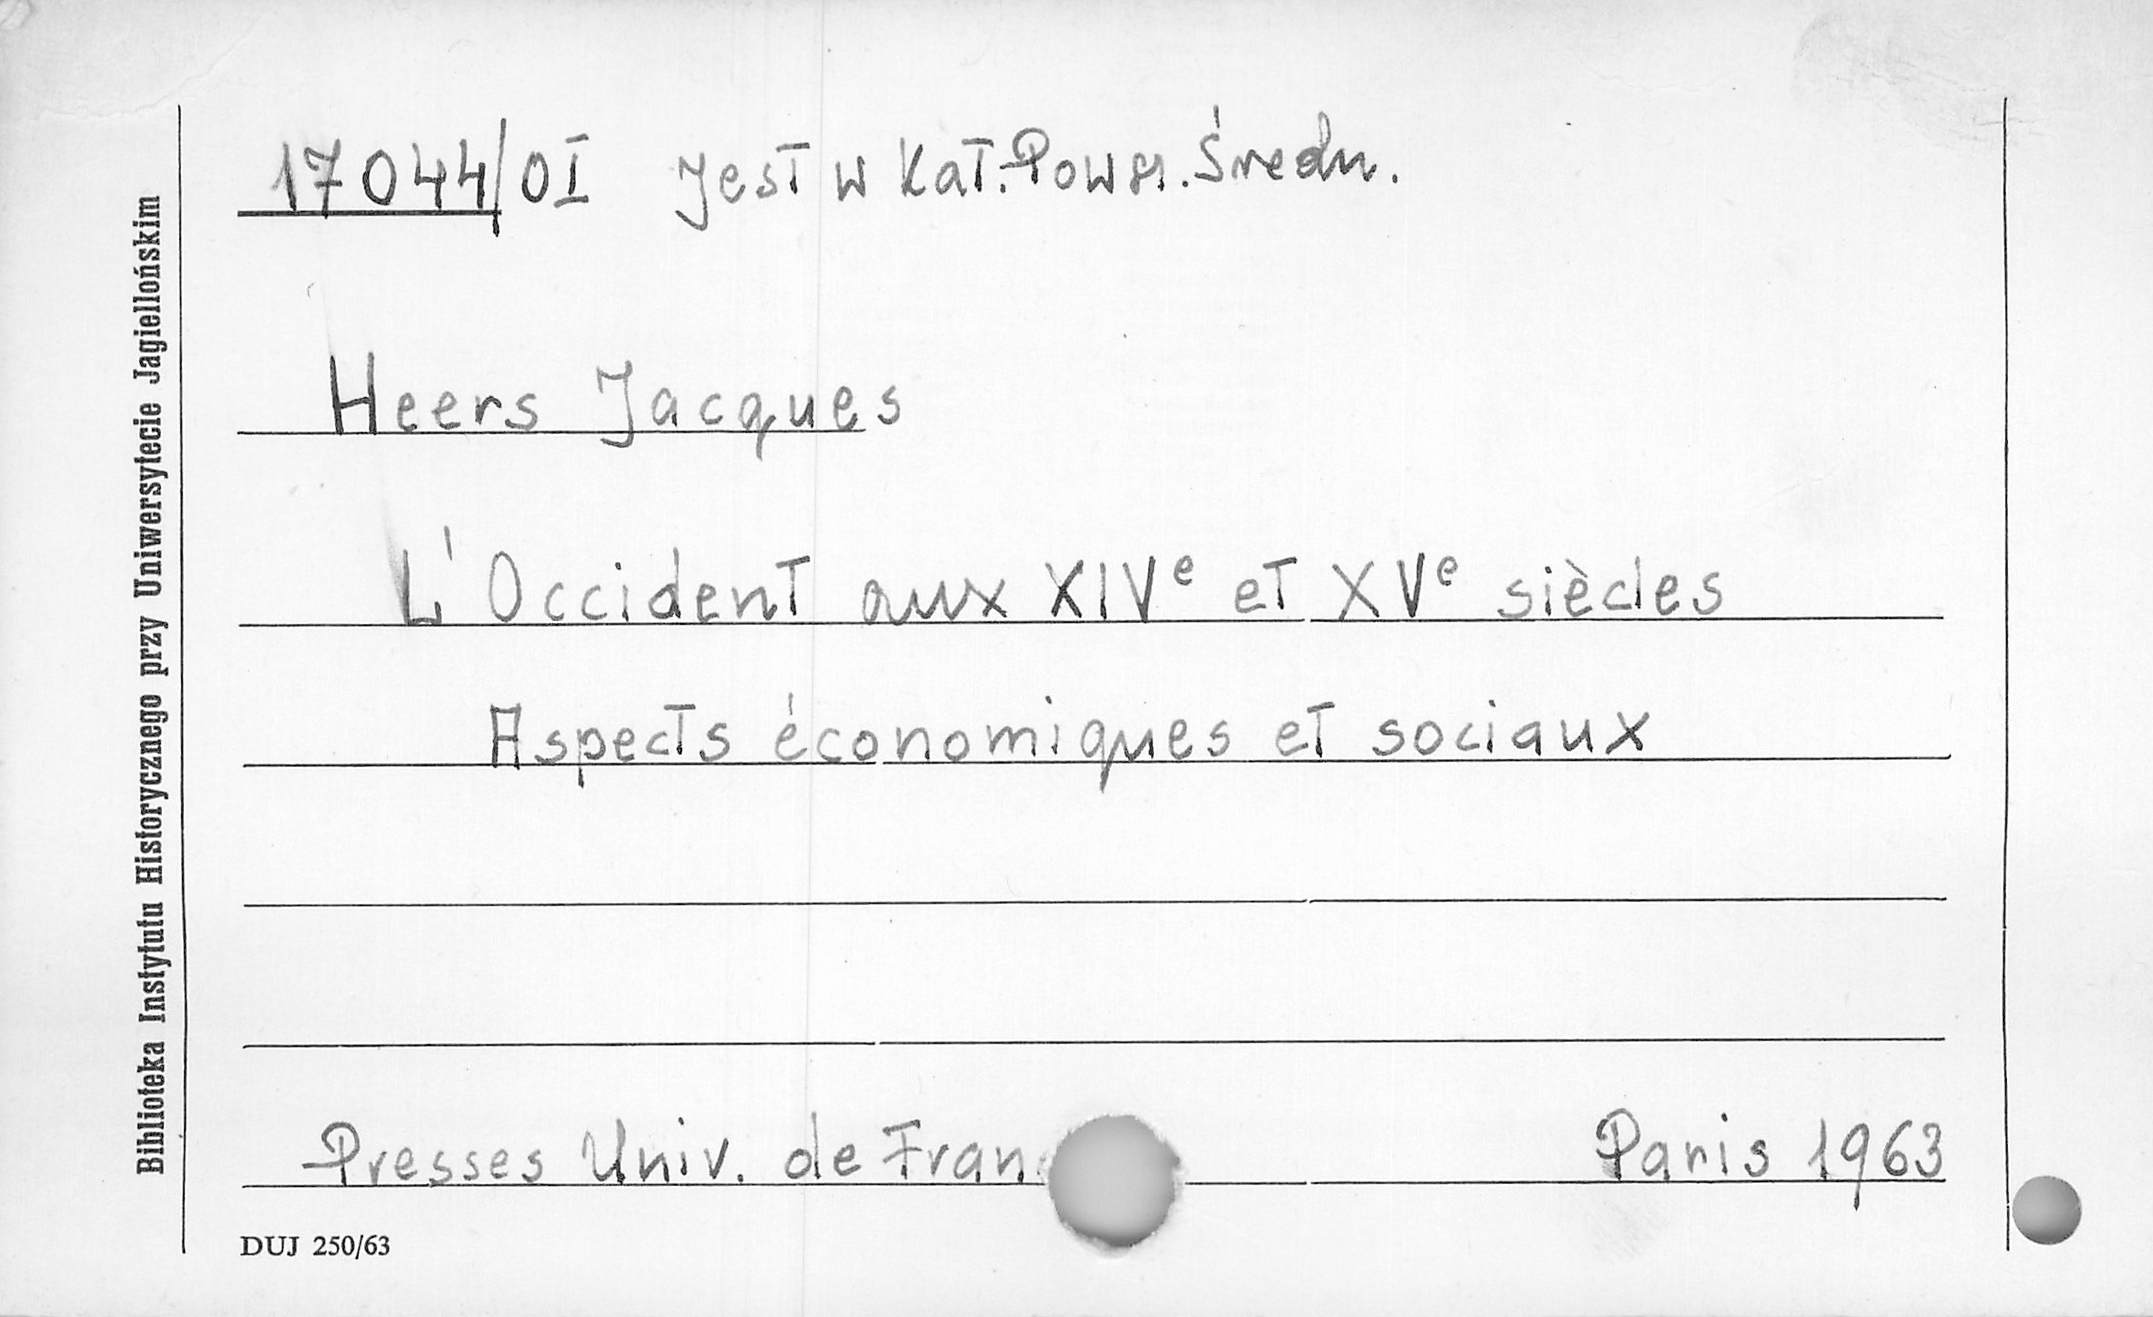 17044/OI Jest w Kat. Powsz. Średn.
Heers Jacques
L'Occident aux XIVe et XVe siècles
Aspects économiques et sociaux
Presses Univ. de Fran
Paris 1963
DUJ 250/63
Biblioteka Instytutu Historycznego przy Uniwersytecie Jagiellońskim